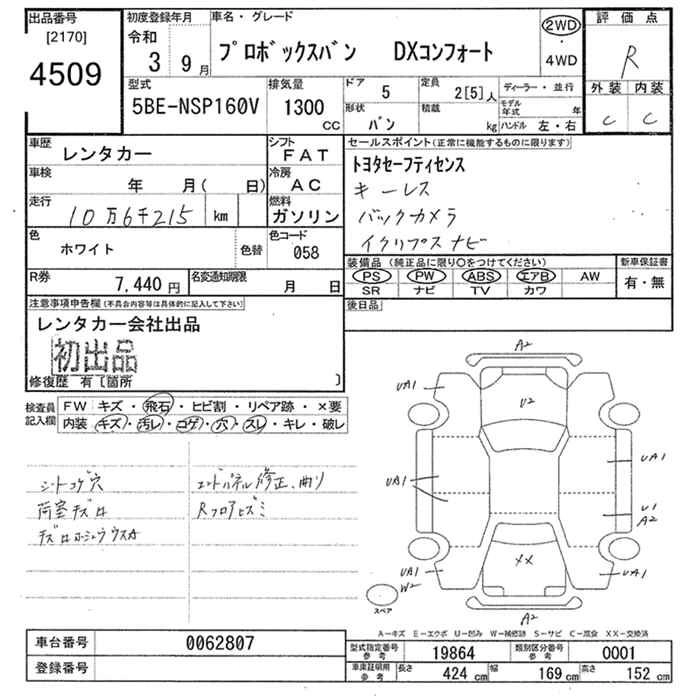 出品番号
[2170]
4509
初度登録年月
令和
3 9月
車名・グレード
プロボックスバン DXコンフォート
2WD
・
4WD
評価点
R
外装 内装
C C
型式
5BE-NSP160V
排気量
1300
CC
ドア
5
形状
バン
定員
2[5]人
積載
kg
ディーラー・並行
モデル年式 年
ハンドル 左・右
車歴
レンタカー
シフト
FAT
車検
年 月( 日)
冷房
AC
走行
10万6千215 km
燃料
ガソリン
色
ホワイト
色替
色コード
058
R券
7,440円
名変通知期限
月 日
セールスポイント(正常に機能するものに限ります)
トヨタセーフティセンス
キーレス
バックカメラ
イクリプスナビ
装備品(純正品に限り〇をつけてください)
PS PW ABS エアB AW
SR ナビ TV カワ
新車保証書
有・無
後日品
注意事項申告欄(不具合内容等は具体的に記入して下さい)
レンタカー会社出品
初出品
修復歴 有〔箇所 〕
検査員記入欄
FW キズ・飛石・ヒビ割・リペア跡・×要
内装 キズ・汚レ・コゲ・穴・スレ・キレ・破レ
シートコゲ穴
荷室キズ
エンドパネル修正、曲り
Rフロアヒズミ
A2
UA1
UA1
U2
UA1
UA1
U1
A2
XX
UA1
W2
UA1
スペア
A2
A-キズ E-エクボ U-凹み W-補修跡 S-サビ C-腐食 XX-交換済
車台番号
0062807
登録番号
型式指定番号
参考
19864
類別区分番号
参考
0001
車庫証明用
参考
長さ 424 cm 幅 169 cm 高さ 152 cm